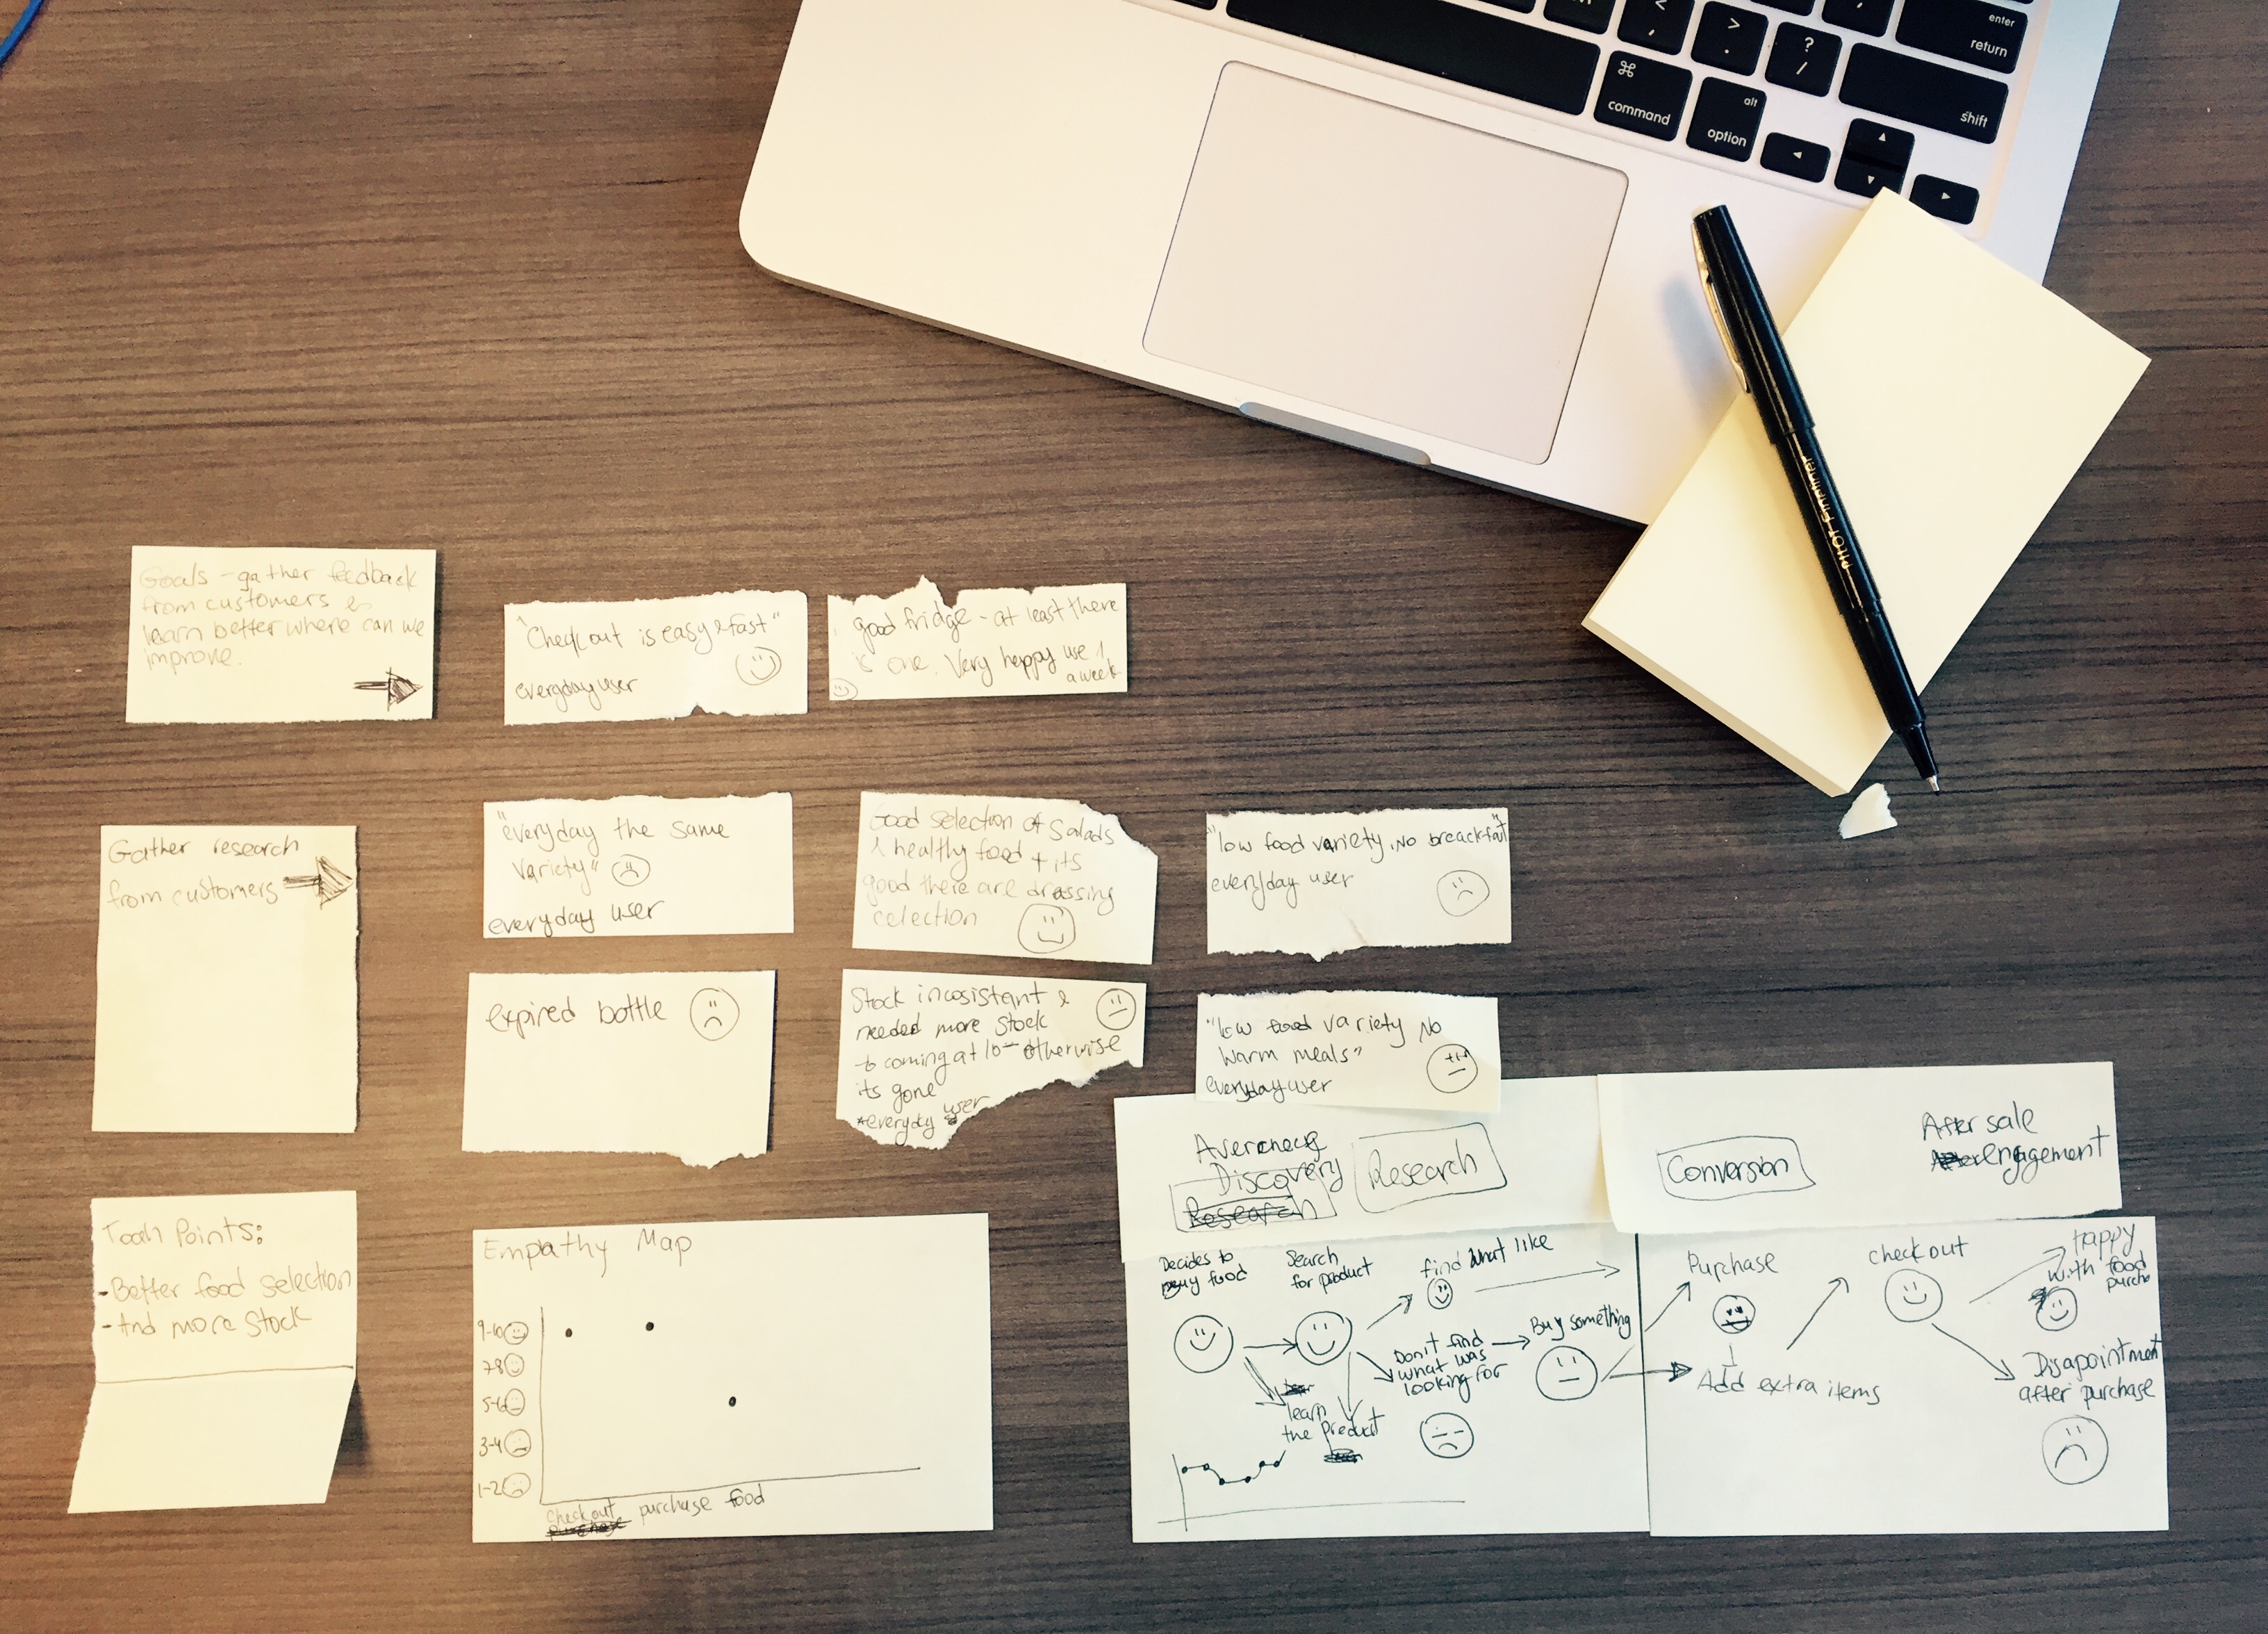 enter
return
<
,
>
.
?
/
⌘
command
alt
option
shift
PILOT Fineliner
Goals - gather feedback
from customers &
learn better where can we
improve.
"Check out is easy & fast"
everyday user
good fridge - at least there
is one. Very happy use 1
a week
Gather research
from customers
"everyday the same
variety"
everyday user
Good selection of salads
& healthy food + its
good there are dressing
celection
"low food variety, No breackfast"
everyday user
expired bottle
Stock incosistant &
needed more stock
to coming at 10 - otherwise
its gone
everyday user
"low food variety No
warm meals"
everyday user
Toch Points:
- Better food selection
- And more stock
Empathy Map
9-10
7-8
5-6
3-4
1-2
checkout purchase food
purchase
Discovery
Research
Research
Conversion
After sale
engagement
Decides to
buy food
Search
for product
find what like
Don't find
what was
looking for
Buy something
learn
the product
Purchase
Add extra items
check out
Happy
with food
purcha
Disapointment
after purchase